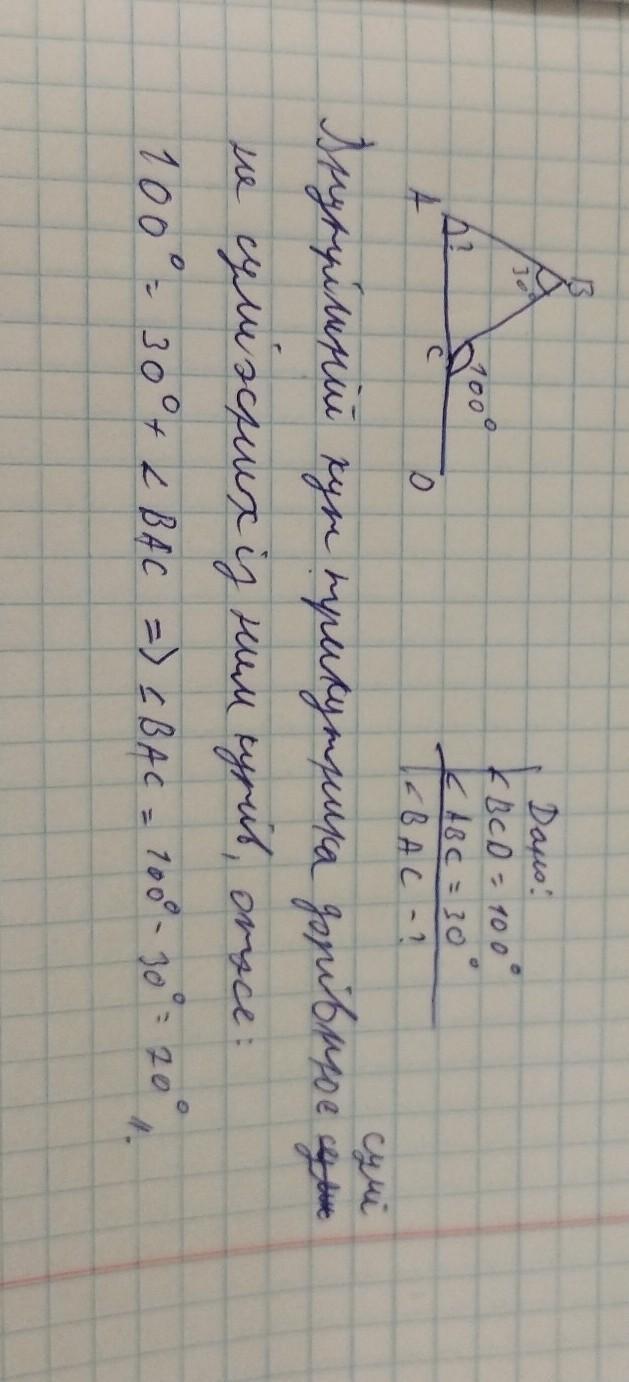 B
30°
100°
A
?
C
D
Дано:
∠BCD = 100°
∠ABC = 30°
∠BAC - ?
Внутрішній кут трикутника дорівнює сумі
не суміжних із ним кутів, отже:
100° = 30° + ∠BAC => ∠BAC = 100° - 30° = 70°